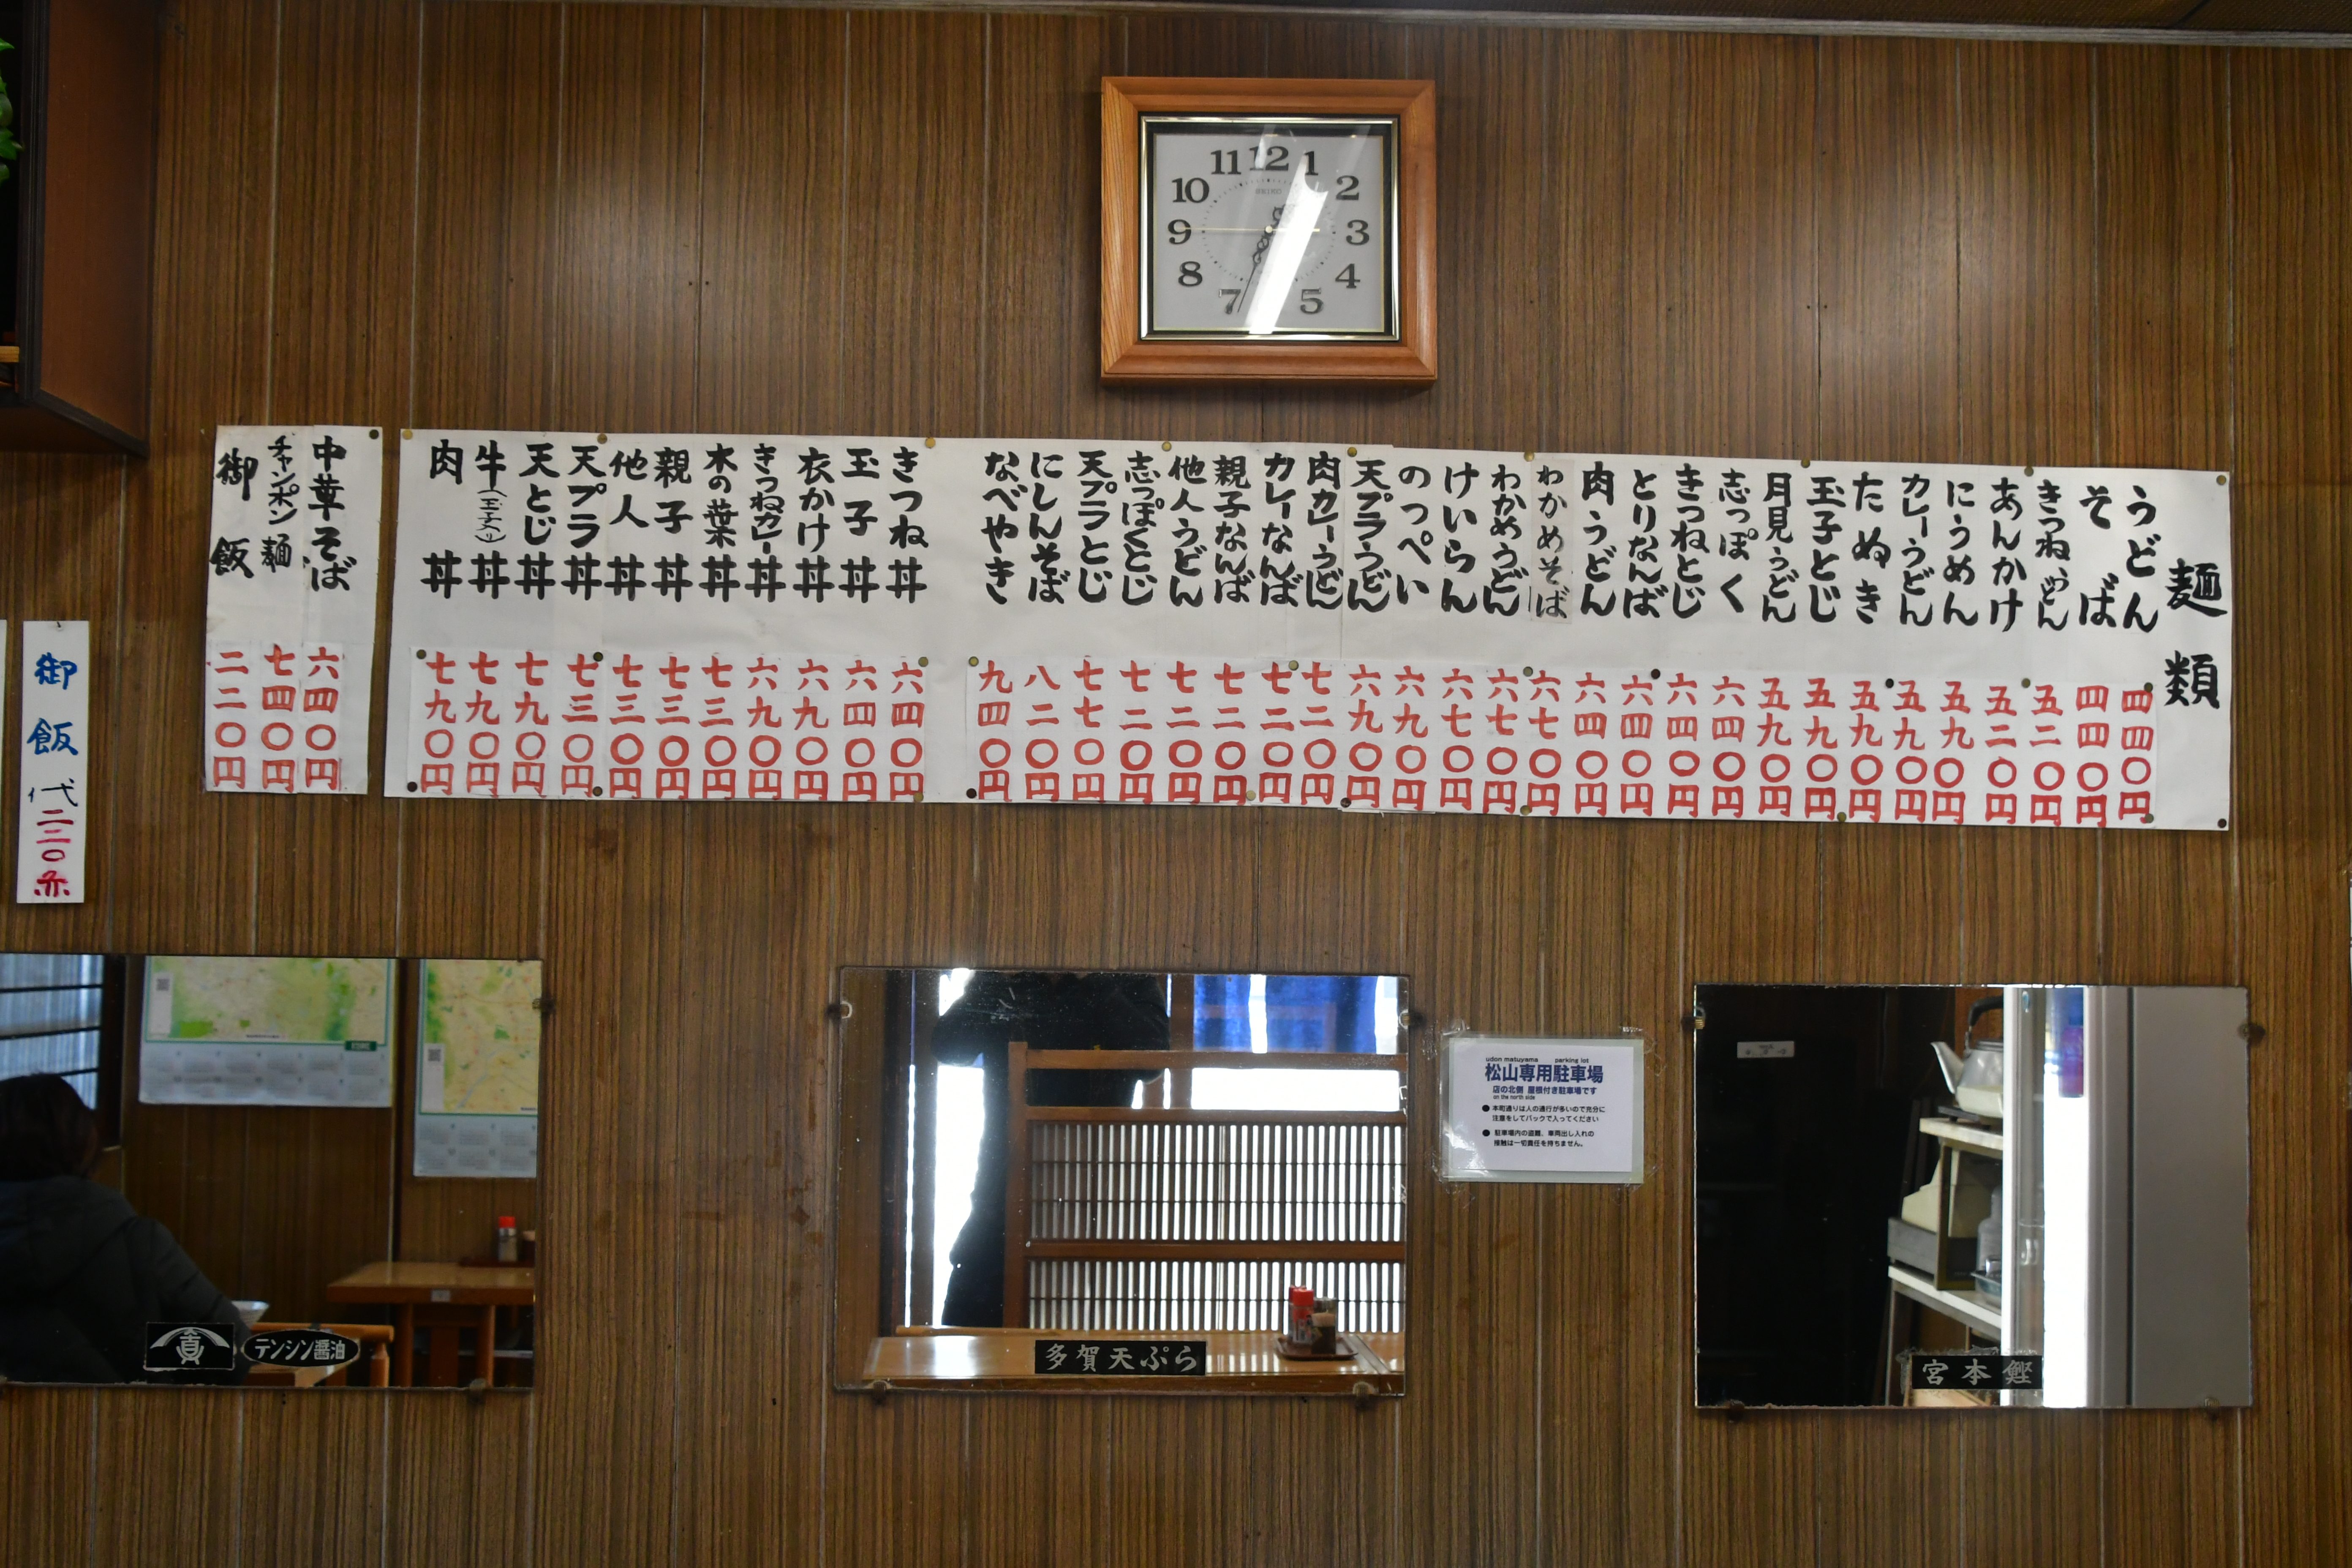 11 12 1
10 2
9 3
8 4
7 5
SEIKO
麺類
うどん 四四〇円
そば 四四〇円
きつねうどん 五二〇円
あんかけ 五二〇円
にうめん 五九〇円
カレーうどん 五九〇円
たぬき 五九〇円
玉子とじ 五九〇円
月見うどん 五九〇円
志っぽく 六四〇円
きつねとじ 六四〇円
とりなんば 六四〇円
肉うどん 六四〇円
わかめそば 六七〇円
わかめうどん 六七〇円
けいらん 六七〇円
のっぺい 六九〇円
天プラうどん 六九〇円
肉カレーうどん 七二〇円
カレーなんば 七二〇円
親子なんば 七二〇円
他人うどん 七二〇円
志っぽくとじ 七二〇円
天プラとじ 七七〇円
にしんそば 八二〇円
なべやき 九四〇円
きつね丼 六四〇円
玉子丼 六四〇円
衣かけ丼 六九〇円
きつねカレー丼 六九〇円
木の葉丼 七三〇円
親子丼 七三〇円
他人丼 七三〇円
天プラ丼 七三〇円
天とじ丼 七九〇円
牛(玉子入り)丼 七九〇円
肉丼 七九〇円
中華そば 六四〇円
チャンポン麺 七四〇円
御飯 二二〇円
御飯代二二〇
udon matuyama parking lot
松山専用駐車場
店の北側 屋根付き駐車場です
on the north side
●本町通りは人の通行が多いので充分に
注意をしてバックで入ってください
●駐車場内の盗難、車両出し入れの
接触は一切責任を持ちません。
眞 テンシン醤油
多賀天ぷら
宮本鰹